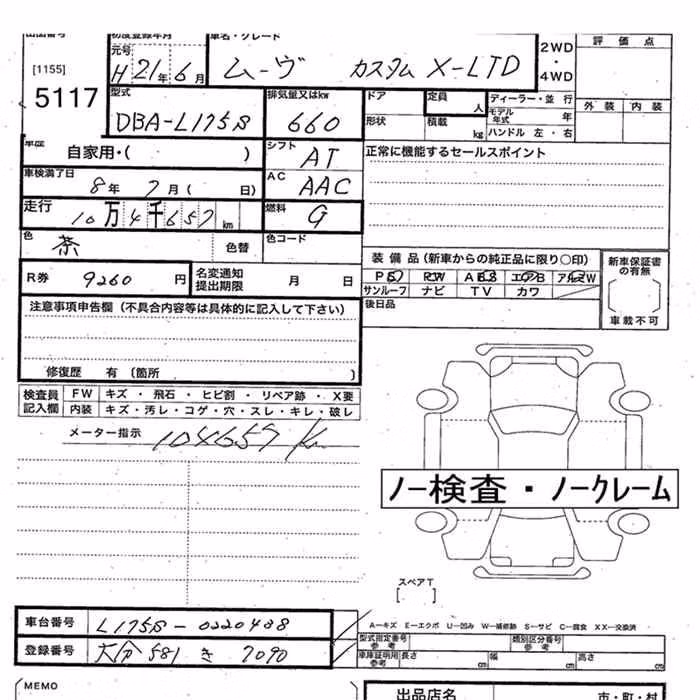 出品番号 初度登録年月 車名・グレード 2WD 評価点
[1155] 元号 H21年6月 ムーヴ カスタム X-LTD ・
5117 4WD
型式 排気量又はkw ドア 定員 人 ディーラー・並行 外装 内装
DBA-L175S 660 形状 積載 kg モデル年式 年
ハンドル 左・右
車歴 自家用・( ) シフト AT 正常に機能するセールスポイント
車検満了日 8年7月( 日) AC AAC
走行 10万4千657km 燃料 G
色 茶 色替 色コード
装備品(新車からの純正品に限り○印) 新車保証書の有無
R券 9260円 名変通知提出期限 月 日 PS PW ABS エアB アルミW
サンルーフ ナビ TV カワ
注意事項申告欄(不具合内容等は具体的に記入して下さい) 後日品 車載不可
修復歴 有(箇所 )
検査員記入欄 FW キズ・飛石・ヒビ割・リペア跡・X要
内装 キズ・汚レ・コゲ・穴・スレ・キレ・破レ
メーター指示 104657 km
ノー検査・ノークレーム
スペアT
[ ]
車台番号 L175S-0220488 A-キズ E-エクボ U-凹み W-補修跡 S-サビ C-腐食 XX-交換済
型式指定番号 参考 類別区分番号 参考
登録番号 大分 581 き 7090 車庫証明用 参考 長さ cm 幅 cm 高さ cm
MEMO 出品店名 市・町・村